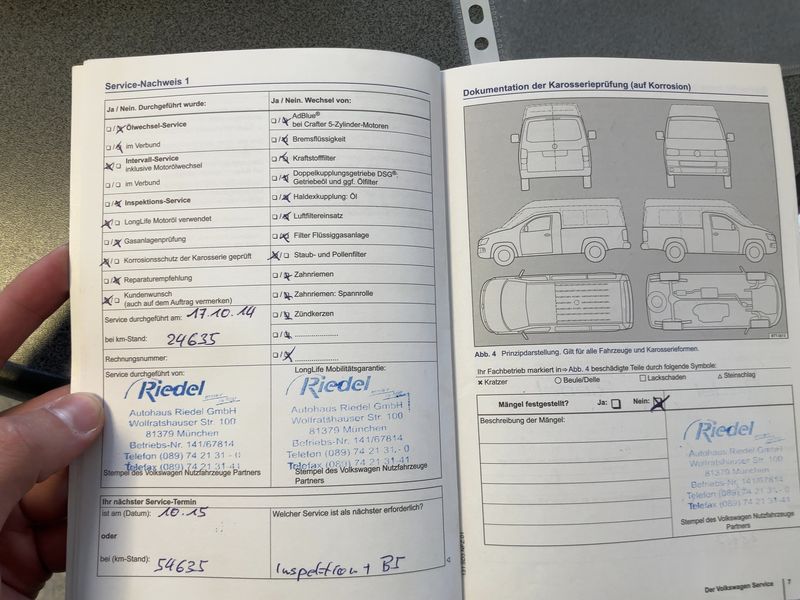 Service-Nachweis 1
Ja / Nein. Durchgeführt wurde:
Ölwechsel-Service
im Verbund
Intervall-Service
inklusive Motorölwechsel
im Verbund
Inspektions-Service
LongLife Motoröl verwendet
Gasanlagenprüfung
Korrosionsschutz der Karosserie geprüft
Reparaturempfehlung
Kundenwunsch
(auch auf dem Auftrag vermerken)
Service durchgeführt am: 17.10.14
bei km-Stand: 24635
Rechnungsnummer:
Service durchgeführt von:
Riedel
Autohaus Riedel GmbH
Wolfratshauser Str. 100
81379 München
Betriebs-Nr. 141/67814
Telefon (089) 74 21 31 - 0
Telefax (089) 74 21 31-41
Stempel des Volkswagen Nutzfahrzeuge Partners
Ja / Nein. Wechsel von:
AdBlue®
bei Crafter 5-Zylinder-Motoren
Bremsflüssigkeit
Kraftstofffilter
Doppelkupplungsgetriebe DSG®:
Getriebeöl und ggf. Ölfilter
Haldexkupplung: Öl
Luftfiltereinsatz
Filter Flüssiggasanlage
Staub- und Pollenfilter
Zahnriemen
Zahnriemen: Spannrolle
Zündkerzen
......................
......................
LongLife Mobilitätsgarantie:
Riedel
Autohaus Riedel GmbH
Wolfratshauser Str. 100
81379 München
Betriebs-Nr. 141/67814
Telefon (089) 74 21 31 - 0
Telefax (089) 74 21 31-41
Stempel des Volkswagen Nutzfahrzeuge
Partners
Ihr nächster Service-Termin
ist am (Datum): 10.15
oder
bei (km-Stand): 54635
Welcher Service ist als nächster erforderlich?
Inspektion + BI
Dokumentation der Karosserieprüfung (auf Korrosion)
Abb. 4 Prinzipdarstellung. Gilt für alle Fahrzeuge und Karosserieformen.
Ihr Fachbetrieb markiert in ⇒ Abb. 4 beschädigte Teile durch folgende Symbole:
× Kratzer ○ Beule/Delle □ Lackschaden △ Steinschlag
Mängel festgestellt? Ja: Nein:
Beschreibung der Mängel:
Riedel
Autohaus Riedel GmbH
Wolfratshauser Str. 100
81379 München
Betriebs-Nr. 141/67814
Telefon (089) 74 21 31 - 0
Telefax (089) 74 21 31-41
Stempel des Volkswagen Nutzfahrzeuge
Partners
Der Volkswagen Service 7